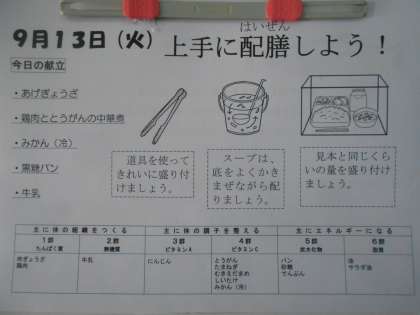 はいぜん
9月13日(火)上手に配膳しよう!
今日の献立
・あげぎょうざ
・鶏肉ととうがんの中華煮
・みかん(冷)
・黒糖パン
・牛乳
道具を使って
きれいに盛り付
けましょう。
スープは、
底をよくかき
まぜながら配
りましょう。
見本と同じくら
いの量を盛り付け
ましょう。
主に体の組織をつくる 主に体の調子を整える 主にエネルギーになる
1群 2群 3群 4群 5群 6群
たんぱく質 無機質 ビタミンA ビタミンC 炭水化物 脂質
肉ぎょうざ 牛乳 にんじん とうがん パン 油
鶏肉 たまねぎ 砂糖 サラダ油
むきえだまめ でんぷん
しいたけ
みかん(冷)